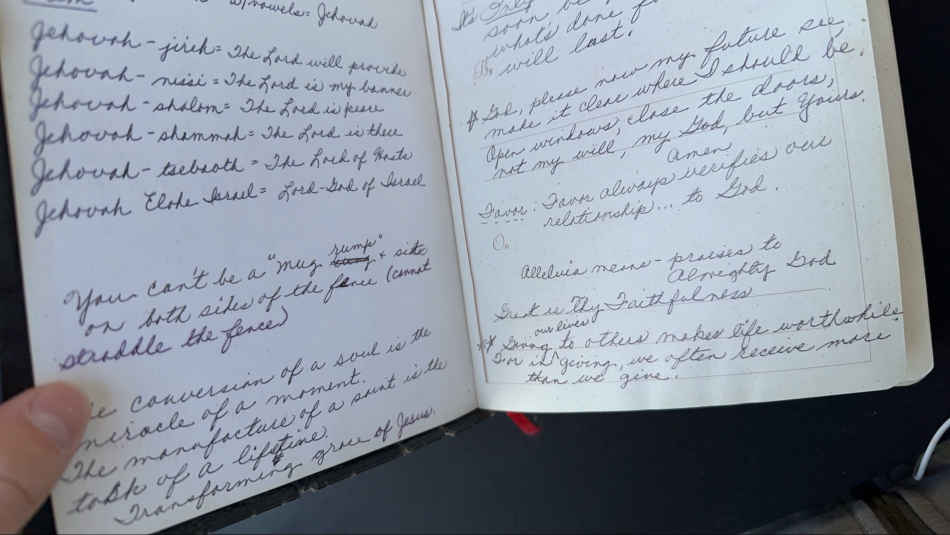 w/vowels = Jehovah
Jehovah - jireh = The Lord will provide
Jehovah - nissi = The Lord is my banner
Jehovah - shalom = The Lord is peace
Jehovah - shammah = The Lord is there
Jehovah - tsebaoth = The Lord of Hosts
Jehovah Elohe Israel = Lord God of Israel
You can't be a "mug rump" + sit
on both sides of the fence (cannot
straddle the fence)
The conversion of a soul is the
miracle of a moment.
The manufacture of a saint is the
task of a lifetime.
Transforming grace of Jesus.
It's Only
soon be
what's done for
will last.
* God, please now my future see,
make it clear where I should be.
Open windows, close the doors,
not my will, my God, but Yours.
amen
Favor: Favor always verifies our
relationship... to God.
Alleluia means - praises to
Almighty God
Great is Thy Faithfulness
our lives
** Giving to others makes life worthwhile
For in giving, we often receive more
than we give.